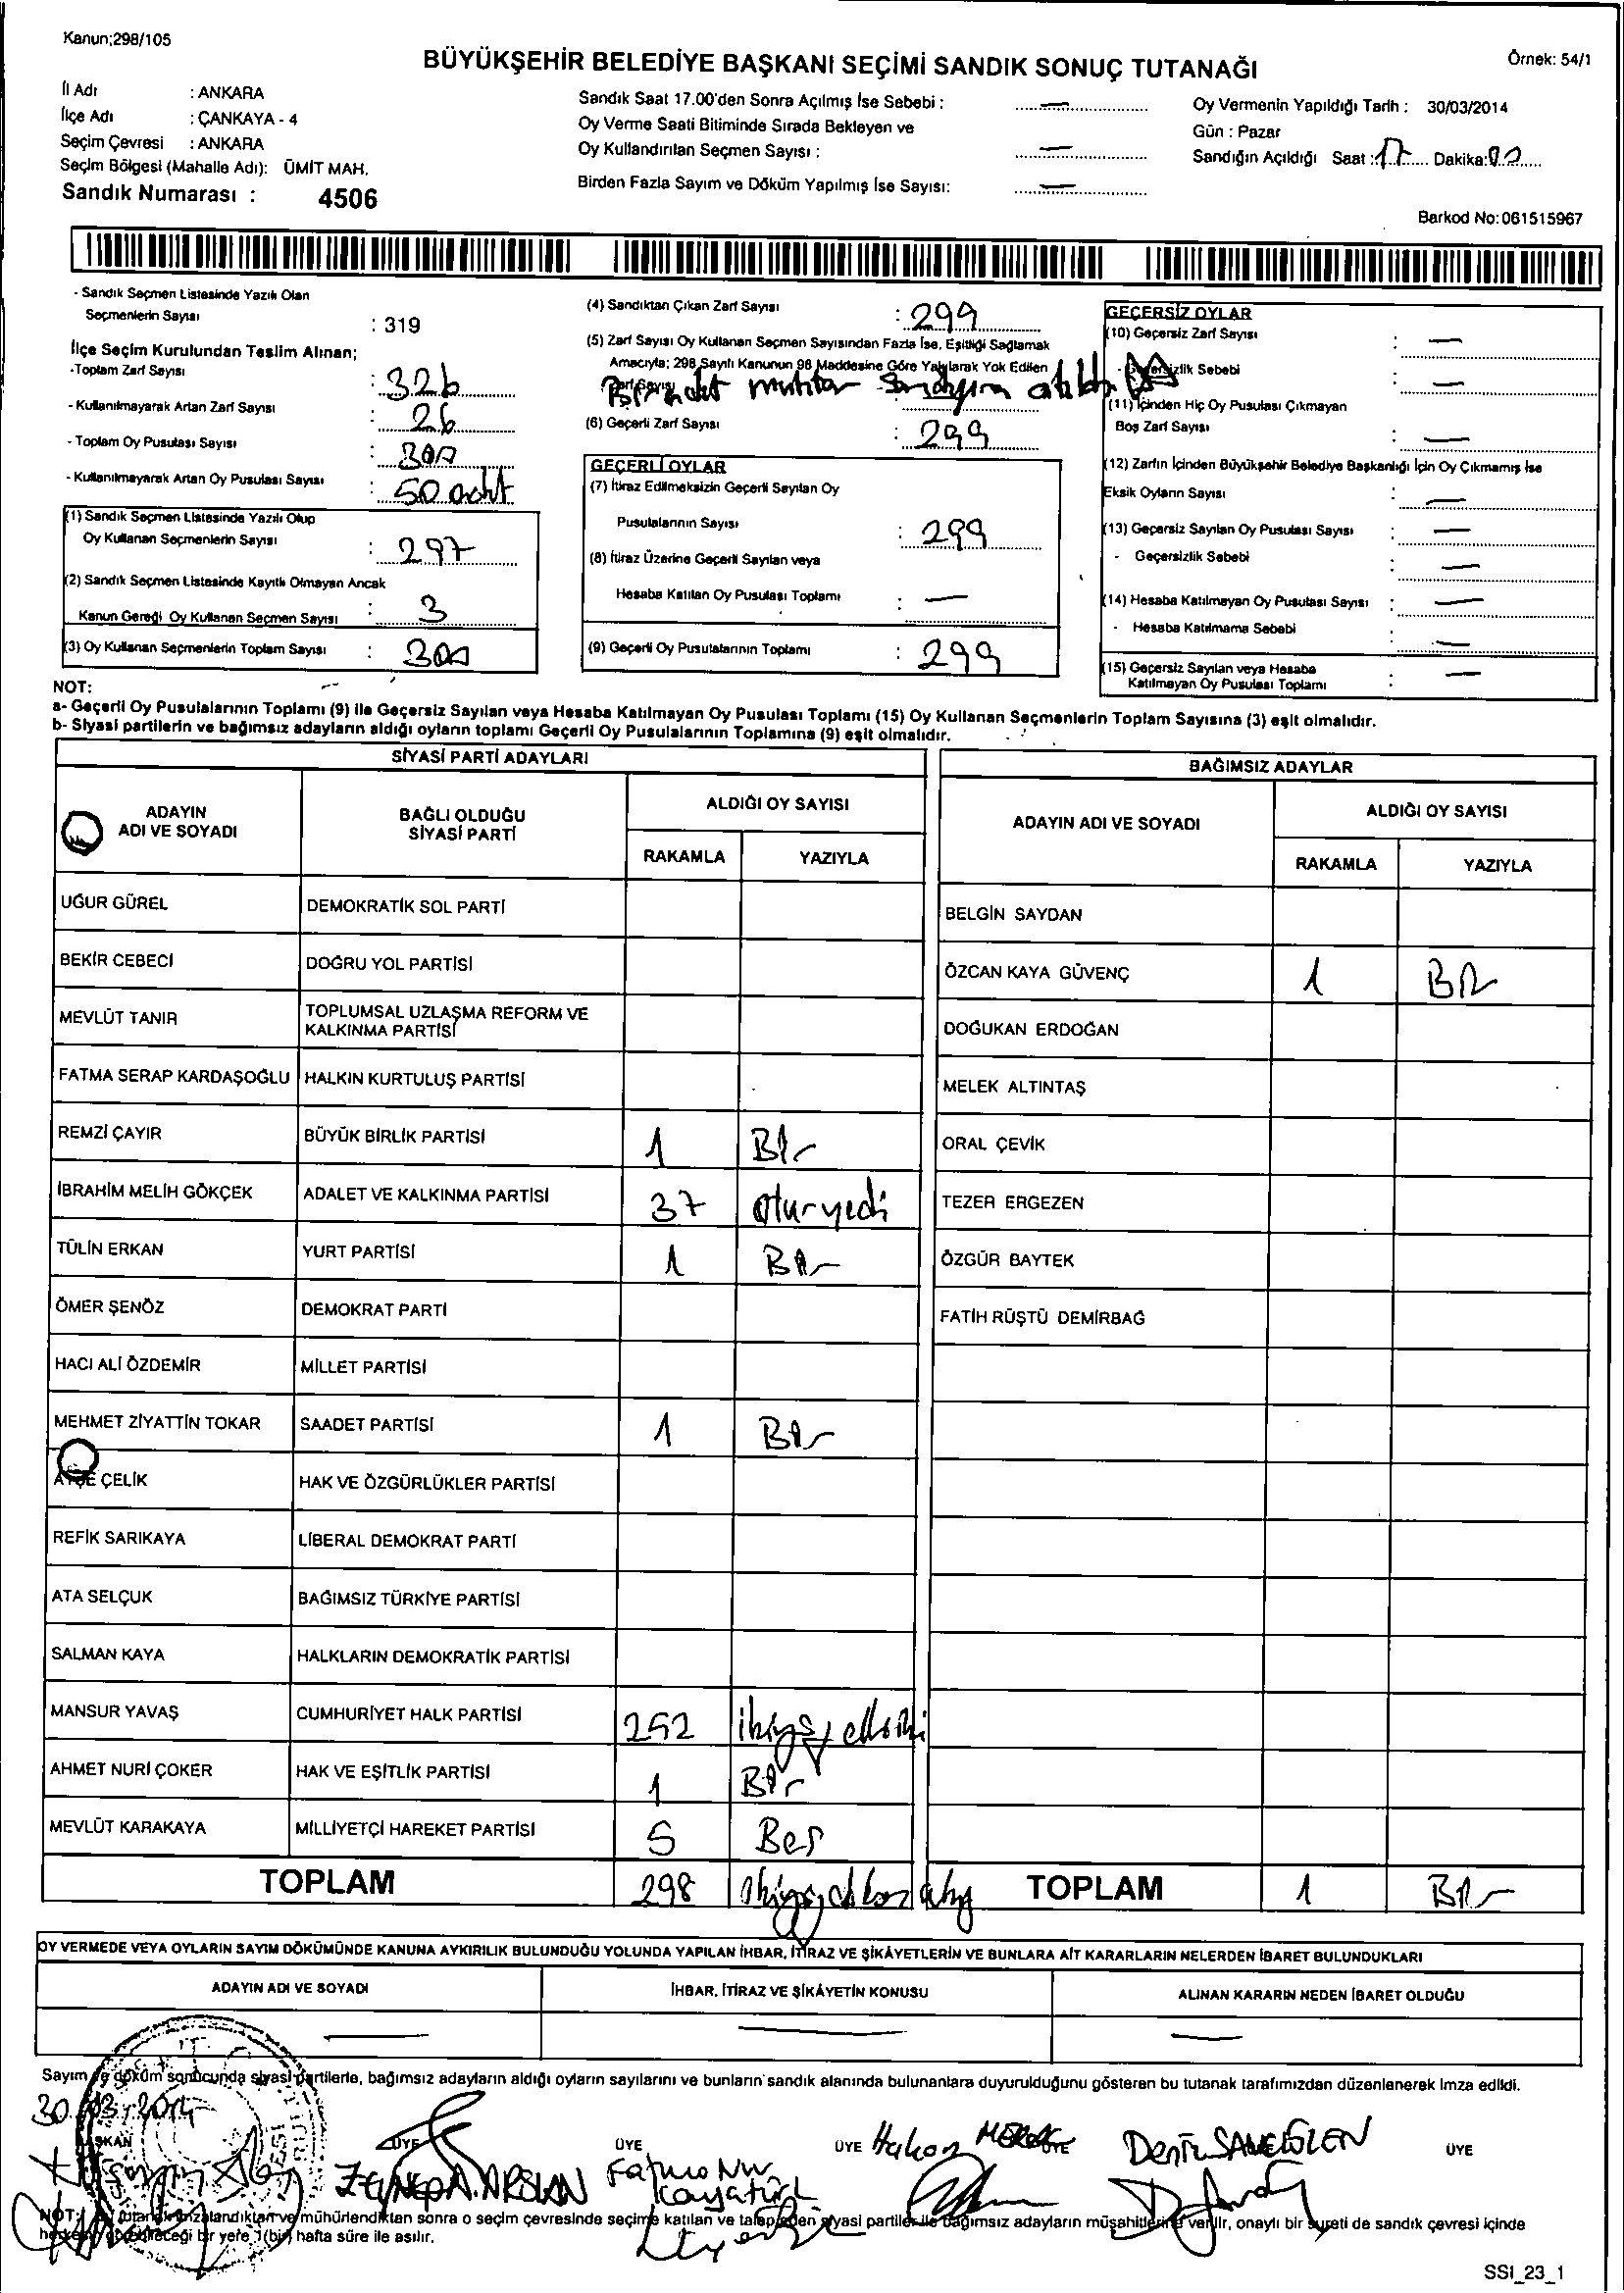 Kanun;298/105
BÜYÜKŞEHİR BELEDİYE BAŞKANI SEÇİMİ SANDIK SONUÇ TUTANAĞI
Örnek: 54/1
İl Adı : ANKARA
İlçe Adı : ÇANKAYA - 4
Seçim Çevresi : ANKARA
Seçim Bölgesi (Mahalle Adı): ÜMİT MAH.
Sandık Numarası : 4506
Sandık Saat 17.00'den Sonra Açılmış İse Sebebi : —
Oy Verme Saati Bitiminde Sırada Bekleyen ve
Oy Kullandırılan Seçmen Sayısı : —
Birden Fazla Sayım ve Döküm Yapılmış İse Sayısı: —
Oy Vermenin Yapıldığı Tarih : 30/03/2014
Gün : Pazar
Sandığın Açıldığı Saat : 17 Dakika: 00
Barkod No: 061515967
- Sandık Seçmen Listesinde Yazılı Olan
Seçmenlerin Sayısı : 319
İlçe Seçim Kurulundan Teslim Alınan;
-Toplam Zarf Sayısı : 326
- Kullanılmayarak Artan Zarf Sayısı : 26
- Toplam Oy Pusulası Sayısı :
- Kullanılmayarak Artan Oy Pusulası Sayısı : 50 adet
(1) Sandık Seçmen Listesinde Yazılı Olup
Oy Kullanan Seçmenlerin Sayısı : 297
(2) Sandık Seçmen Listesinde Kayıtlı Olmayan Ancak
Kanun Gereği Oy Kullanan Seçmen Sayısı : 3
(3) Oy Kullanan Seçmenlerin Toplam Sayısı : 300
(4) Sandıktan Çıkan Zarf Sayısı : 299
(5) Zarf Sayısı Oy Kullanan Seçmen Sayısından Fazla İse, Eşitliği Sağlamak
Amacıyla; 298 Sayılı Kanunun 98 Maddesine Göre Yakılarak Yok Edilen
Zarf Sayısı
Bir adet muhtar sandığına atıldı
(6) Geçerli Zarf Sayısı : 299
GEÇERLİ OYLAR
(7) İtiraz Edilmeksizin Geçerli Sayılan Oy
Pusulalarının Sayısı : 299
(8) İtiraz Üzerine Geçerli Sayılan veya
Hesaba Katılan Oy Pusulası Toplamı : —
(9) Geçerli Oy Pusulalarının Toplamı : 299
GEÇERSİZ OYLAR
(10) Geçersiz Zarf Sayısı : —
- Geçersizlik Sebebi : —
(11) İçinden Hiç Oy Pusulası Çıkmayan
Boş Zarf Sayısı : —
(12) Zarfın İçinden Büyükşehir Belediye Başkanlığı İçin Oy Çıkmamış İse
Eksik Oyların Sayısı : —
(13) Geçersiz Sayılan Oy Pusulası Sayısı : —
- Geçersizlik Sebebi : —
(14) Hesaba Katılmayan Oy Pusulası Sayısı : —
- Hesaba Katılmama Sebebi : —
(15) Geçersiz Sayılan veya Hesaba
Katılmayan Oy Pusulası Toplamı : —
NOT:
a- Geçerli Oy Pusulalarının Toplamı (9) ile Geçersiz Sayılan veya Hesaba Katılmayan Oy Pusulası Toplamı (15) Oy Kullanan Seçmenlerin Toplam Sayısına (3) eşit olmalıdır.
b- Siyasi partilerin ve bağımsız adayların aldığı oyların toplamı Geçerli Oy Pusulalarının Toplamına (9) eşit olmalıdır.
SİYASİ PARTİ ADAYLARI
ADAYIN ADI VE SOYADI
BAĞLI OLDUĞU SİYASİ PARTİ
ALDIĞI OY SAYISI
RAKAMLA YAZIYLA
UĞUR GÜREL DEMOKRATİK SOL PARTİ
BEKİR CEBECİ DOĞRU YOL PARTİSİ
MEVLÜT TANIR TOPLUMSAL UZLAŞMA REFORM VE KALKINMA PARTİSİ
FATMA SERAP KARDAŞOĞLU HALKIN KURTULUŞ PARTİSİ
REMZİ ÇAYIR BÜYÜK BİRLİK PARTİSİ 1 Bir
İBRAHİM MELİH GÖKÇEK ADALET VE KALKINMA PARTİSİ 37 oturyedi
TÜLİN ERKAN YURT PARTİSİ 1 Bir
ÖMER ŞENÖZ DEMOKRAT PARTİ
HACI ALİ ÖZDEMİR MİLLET PARTİSİ
MEHMET ZİYATTİN TOKAR SAADET PARTİSİ 1 Bir
AYŞE ÇELİK HAK VE ÖZGÜRLÜKLER PARTİSİ
REFİK SARIKAYA LİBERAL DEMOKRAT PARTİ
ATA SELÇUK BAĞIMSIZ TÜRKİYE PARTİSİ
SALMAN KAYA HALKLARIN DEMOKRATİK PARTİSİ
MANSUR YAVAŞ CUMHURİYET HALK PARTİSİ 252 ikiyüzelliiki
AHMET NURİ ÇOKER HAK VE EŞİTLİK PARTİSİ 1 Bir
MEVLÜT KARAKAYA MİLLİYETÇİ HAREKET PARTİSİ 5 Beş
TOPLAM 298
BAĞIMSIZ ADAYLAR
ADAYIN ADI VE SOYADI
ALDIĞI OY SAYISI
RAKAMLA YAZIYLA
BELGİN SAYDAN
ÖZCAN KAYA GÜVENÇ 1 Bir
DOĞUKAN ERDOĞAN
MELEK ALTINTAŞ
ORAL ÇEVİK
TEZER ERGEZEN
ÖZGÜR BAYTEK
FATİH RÜŞTÜ DEMİRBAĞ
TOPLAM 1 Bir
OY VERMEDE VEYA OYLARIN SAYIM DÖKÜMÜNDE KANUNA AYKIRILIK BULUNDUĞU YOLUNDA YAPILAN İHBAR, İTİRAZ VE ŞİKÂYETLERİN VE BUNLARA AİT KARARLARIN NELERDEN İBARET BULUNDUKLARI
ADAYIN ADI VE SOYADI İHBAR, İTİRAZ VE ŞİKÂYETİN KONUSU ALINAN KARARIN NEDEN İBARET OLDUĞU
— — —
Sayım ve döküm sonucunda siyasi partilerle, bağımsız adayların aldığı oyların sayılarını ve bunların sandık alanında bulunanlara duyurulduğunu gösteren bu tutanak tarafımızdan düzenlenerek imza edildi.
30.03.2014
BAŞKAN ÜYE ÜYE ÜYE ÜYE ÜYE
ZEYNEP A. ARSLAN
Fatma Nur
Kayatürk
Hakan
Deniz
NOT: Bu tutanak imzalandıktan ve mühürlendikten sonra o seçim çevresinde seçime katılan ve talep eden siyasi partiler ile bağımsız adayların müşahitlerine verilir, onaylı bir sureti de sandık çevresi içinde
herkesin görebileceği bir yere 1(bir) hafta süre ile asılır.
SSI_23_1